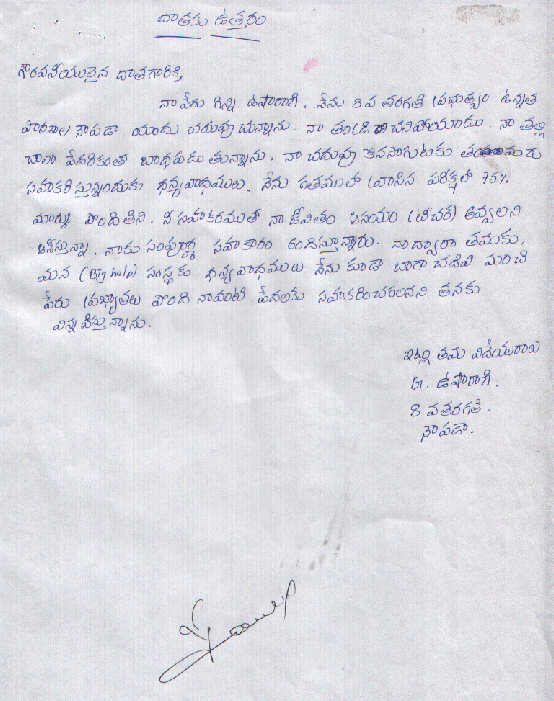 దాతకు ఉత్తరం
గౌరవనీయులైన దాతగారికి,
నా పేరు గిన్ని ఉషారాణి. నేను 8 వ తరగతి ప్రభుత్వం ఉన్నత
పాఠశాల నౌపడా యందు చదువు చున్నాను. నా తండ్రి చనిపోయాడు. నా తల్లి
చాలా పేదరికంతో బాధపడు తున్నాను. నా చదువు కొనసాగుటకు తమరు
సహకరిస్తున్నందుకు ధన్యవాధములు. నేను గతములో వ్రాసిన పరిక్షలో 75%
మార్కు పొందితిని. మీ సహకారముతో నా జీవితం (టీచర) అవ్వాలని
ఆశిస్తున్నా. నాకు సంపూర్ణ సహకారం అందిస్తున్నారు. నా ద్వారా తమకు,
మన సంస్థకు ధన్యవాధములు నేను కూడా బాగా చదివి మంచి
పేరు ప్రఖ్యాతలు పొంది నావంటి పేదలను సహకరించాలనని తనకు
విన్నవిస్తున్నాను.
ఇట్లు తమ విదేయురాలు
G. ఉషారాణి.
8 వ తరగతి.
నౌపడా.